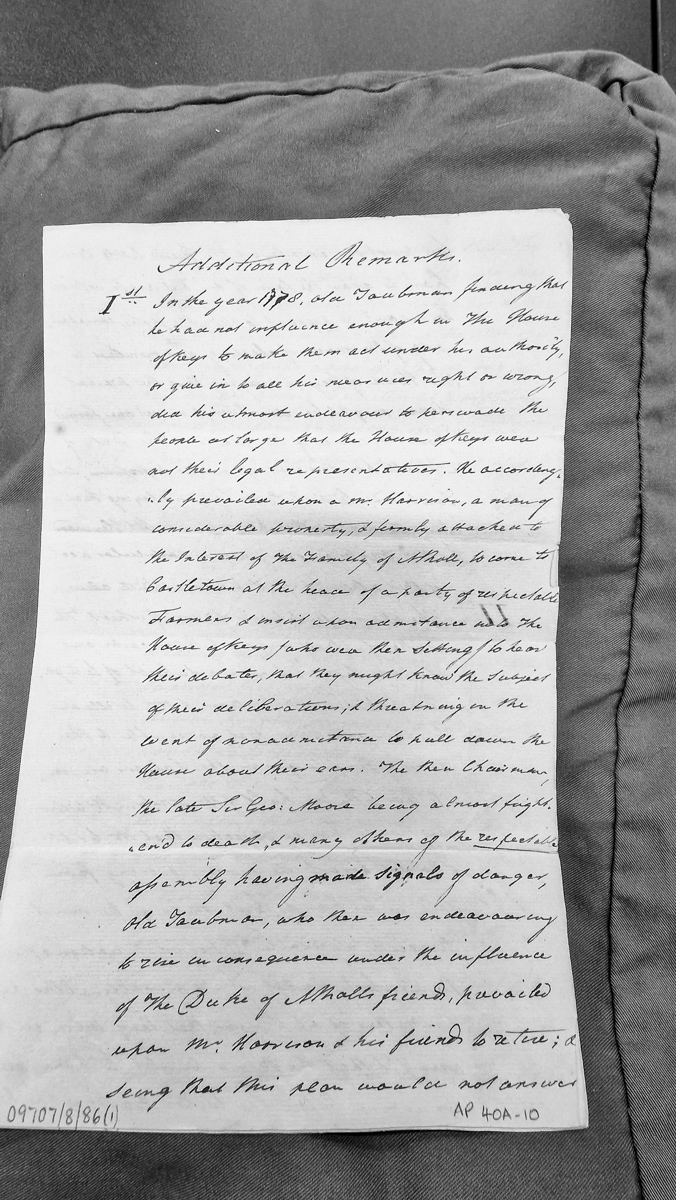 Additional Remarks.
1st In the year 1778, old Taubman finding that
he had not influence enough in The House
of Keys to make them act under his authority,
or give in to all his measures right or wrong,
did his utmost endeavour to perswade the
people at large that the House of Keys were
not their legal representatives. He according,
„ly prevailed upon a Mr. Harrison, a man of
considerable property, & firmly attached to
the Interest of The Family of Atholl, to come to
Castletown at the head of a party of respectable
Farmers & insist upon admitance into The
House of Keys (who were then setting) to hear
their debates, that they might know the subject
of their deliberations; & threatning in the
event of nonadmittance to pull down the
House about their ears. The then Chairman,
the late Sir Geo: Moore being almost fright-
„end to death, & many others of the respectable
assembly having made signals of danger,
old Taubman, who then was endeavouring
to rise in consequence under the influence
of The Duke of Atholls friends, prevailed
upon Mr. Harrison & his friends to retire; &
seing that this plan would not answer
09707/8/86(1)
AP 40A-10